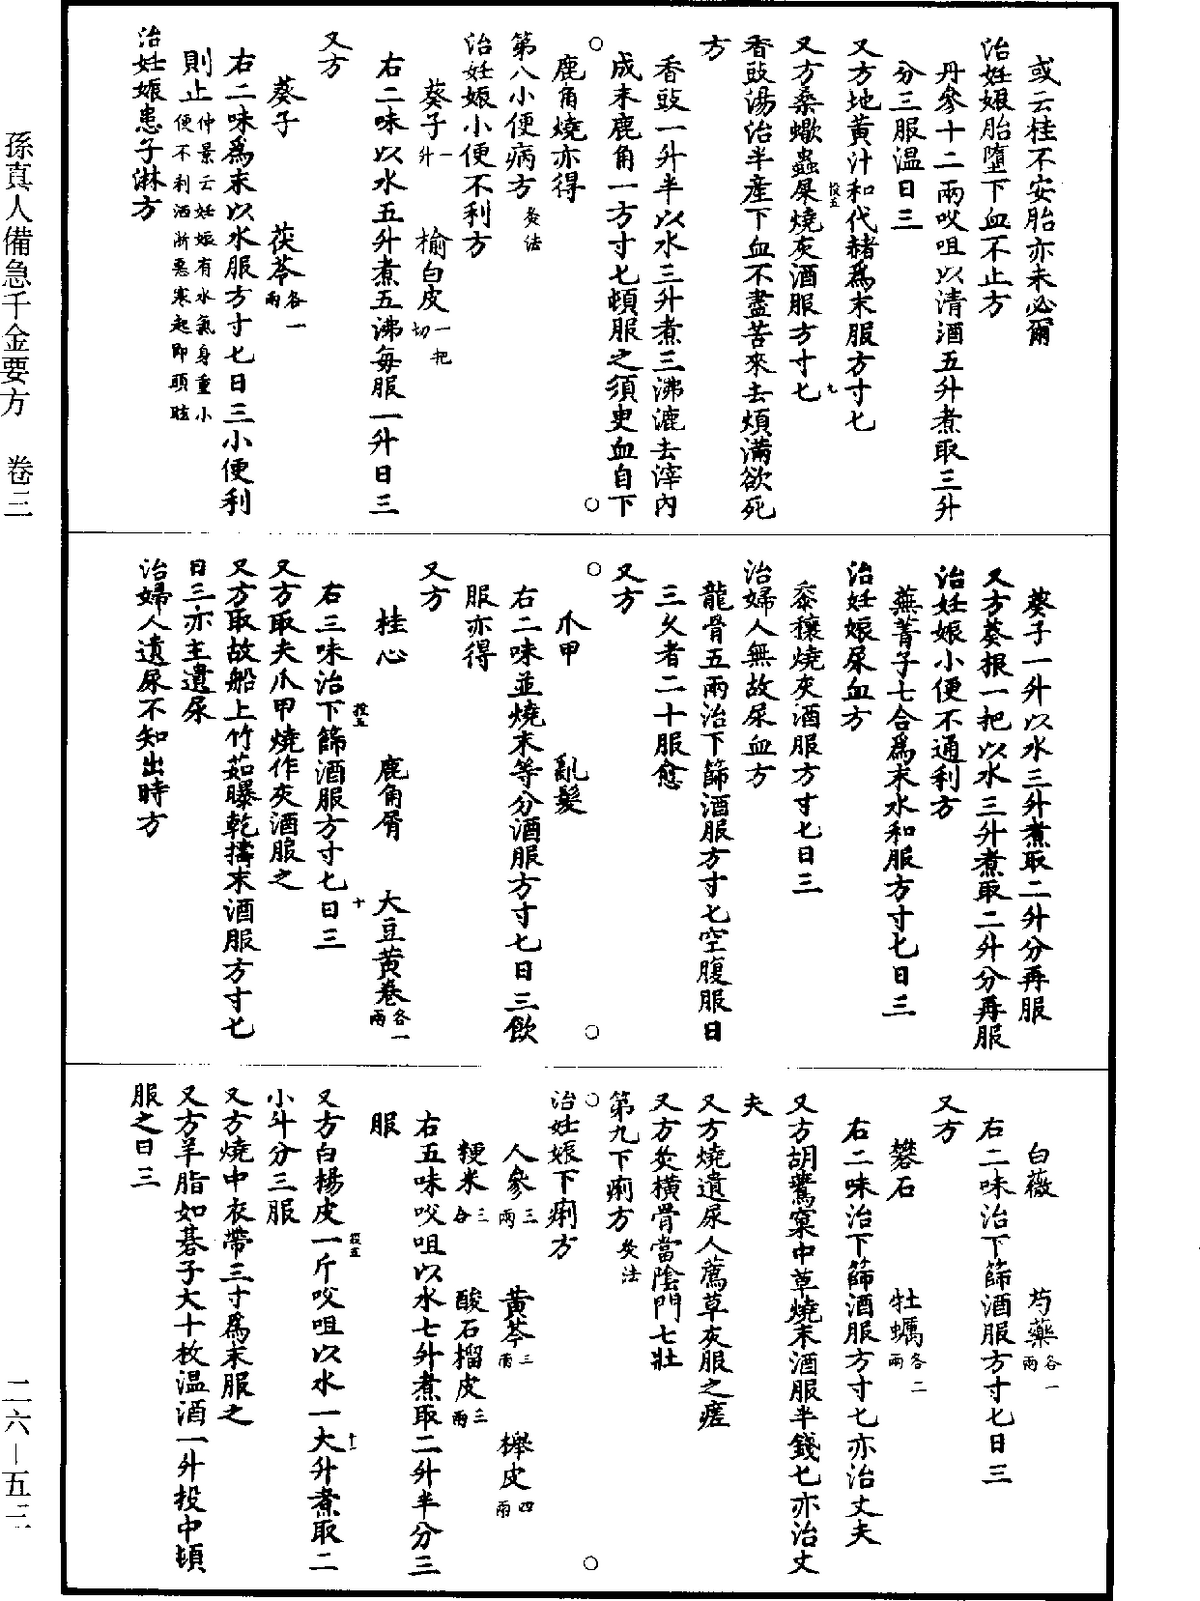 或云桂不安胎亦未必爾
治妊娠胎墮下血不止方
丹參十二兩㕮咀以清酒五升煮取三升
分三服溫日三
又方地黃汁和代赭爲末服方寸匕
又方桑蠍蟲屎燒灰酒服方寸匕
投五 九
香豉湯治半產下血不盡苦來去煩滿欲死
方
香豉一升半以水三升煮三沸漉去滓內
成末鹿角一方寸匕頓服之須臾血自下
鹿角燒亦得
第八小便病方 灸法
治妊娠小便不利方
葵子一升 榆白皮一把切
右二味以水五升煮五沸每服一升日三
又方
葵子 茯苓各一兩
右二味爲末以水服方寸匕日三小便利
則止仲景云妊娠有水氣身重小便不利洒淅惡寒起即頭眩
治妊娠患子淋方
葵子一升以水三升煮取二升分再服
又方葵根一把以水三升煮取二升分再服
治妊娠小便不通利方
蕪菁子七合爲末水和服方寸匕日三
治妊娠尿血方
黍穰燒灰酒服方寸匕日三
治婦人無故尿血方
龍骨五兩治下篩酒服方寸匕空腹服日
三久者二十服愈
又方
爪甲 亂髮
右二味並燒末等分酒服方寸匕日三飲
服亦得
又方
桂心 鹿角屑 大豆黃卷各一兩
右三味治下篩酒服方寸匕日三
投五 十
又方取夫爪甲燒作灰酒服之
又方取故船上竹茹曝乾擣末酒服方寸匕
日三亦主遺尿
治婦人遺尿不知出時方
白薇 芍藥各一兩
右二味治下篩酒服方寸匕日三
又方
礬石 牡蠣各二兩
右二味治下篩酒服方寸匕亦治丈夫
又方胡鷰窠中草燒末酒服半錢匕亦治丈
夫
又方燒遺尿人薦草灰服之瘥
又方灸橫骨當陰門七壯
第九下痢方 灸法
治妊娠下痢方
人參三兩 黃芩三兩 櫸皮四兩
粳米三合 酸石榴皮三兩
右五味㕮咀以水七升煮取二升半分三
服
又方白楊皮一斤㕮咀以水一大升煮取二
投五 十一
小斗分三服
又方燒中衣帶三寸爲末服之
又方羊脂如碁子大十枚溫酒一升投中頓
服之日三
孫真人備急千金要方 卷三
二六—五三